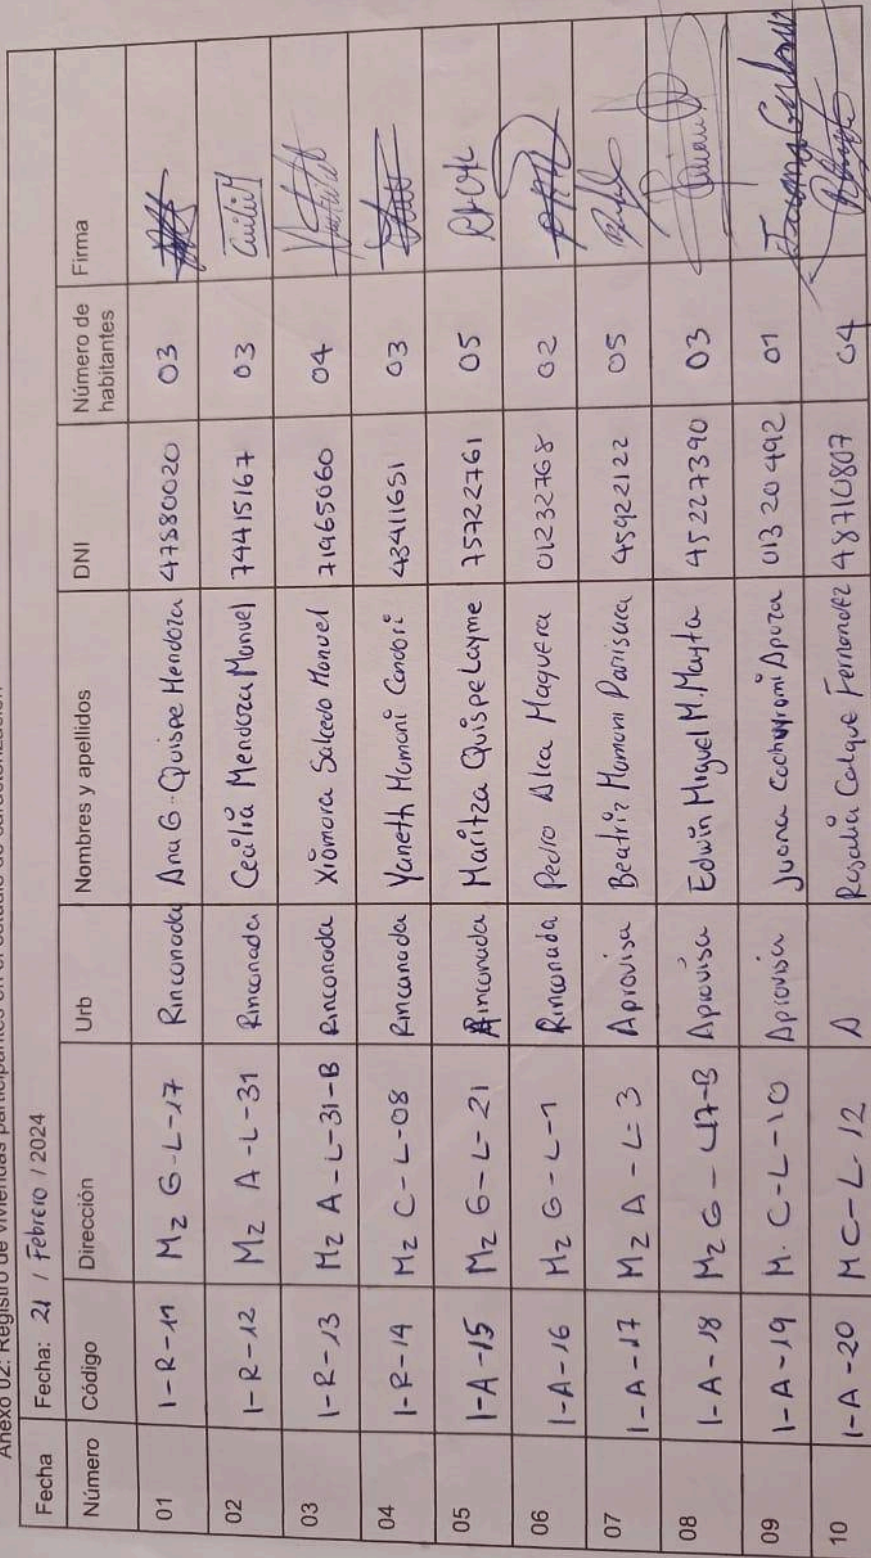 Anexo 02: Registro de viviendas participantes en el estudio de caracterización
Fecha Fecha: 21 / Febrero / 2024
Número Código Dirección Urb Nombres y apellidos DNI Número de habitantes Firma
01 1-R-11 Mz G-L-17 Rinconada Ana G. Quispe Mendoza 47580020 03
02 1-R-12 Mz A-L-31 Rinconada Cecilia Mendoza Manuel 74415167 03
03 1-R-13 Mz A-L-31-B Rinconada Xiomara Salcedo Manuel 71965060 04
04 1-R-14 Mz C-L-08 Rinconada Yaneth Mamani Condori 43411651 03
05 1-A-15 Mz G-L-21 Rinconada Maritza Quispe Layme 75722761 05
06 1-A-16 Mz G-L-1 Rinconada Pedro Alca Maquera 01232768 02
07 1-A-17 Mz A-L-3 Aprovisa Beatriz Mamani Parisuca 45922122 05
08 1-A-18 Mz G-L17-B Aprovisa Edwin Miguel M. Mayta 45227390 03
09 1-A-19 M. C-L-10 Aprovisa Juana Apaza 01320492 01
10 1-A-20 MC-L-12 A Rosalia Calque Fernandez 48710807 04